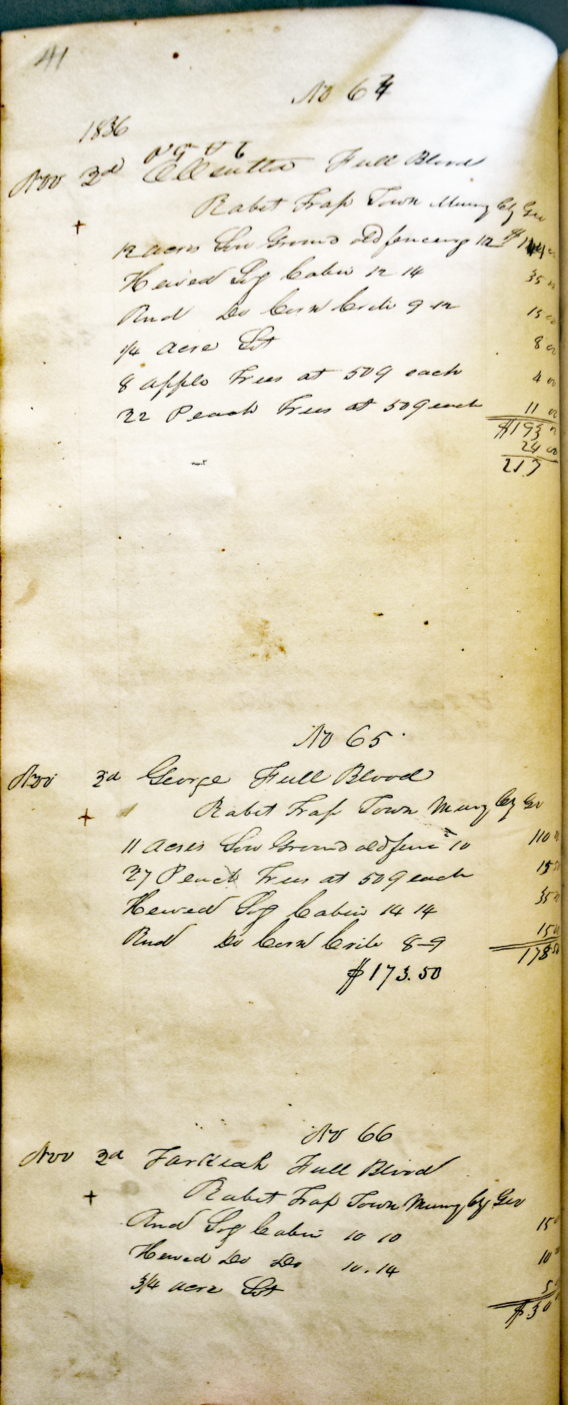 41
No 64
1836
Nov 2d Full Blood
Rabit Trap Town Murry Cty Geo
12 acres Low Ground old fencing 12 $ 144
Hewed Log Cabin 12 14 35 00
Rnd Do Corn Crib 9-12 15 00
1/4 acre Lot 8 00
8 apple Trees at 50¢ each 4 00
22 Peach Trees at 50¢ each 11 00
$193
24 00
217
No 65
Nov 3d George Full Blood
Rabit Trap Town Murry Cty Geo
11 acres Low Ground old fence 10 110
27 Peach Trees at 50¢ each 13 50
Hewed Log Cabin 14 14 35
Rnd Do Corn Crib 8-9 15
178 50
$173.50
No 66
Nov 3d Full Blood
Rabit Trap Town Murry Cty Geo
Rnd Log Cabin 10 10 15
Hewed Do Do 10.14 10
3/4 acre Lot 5
$30